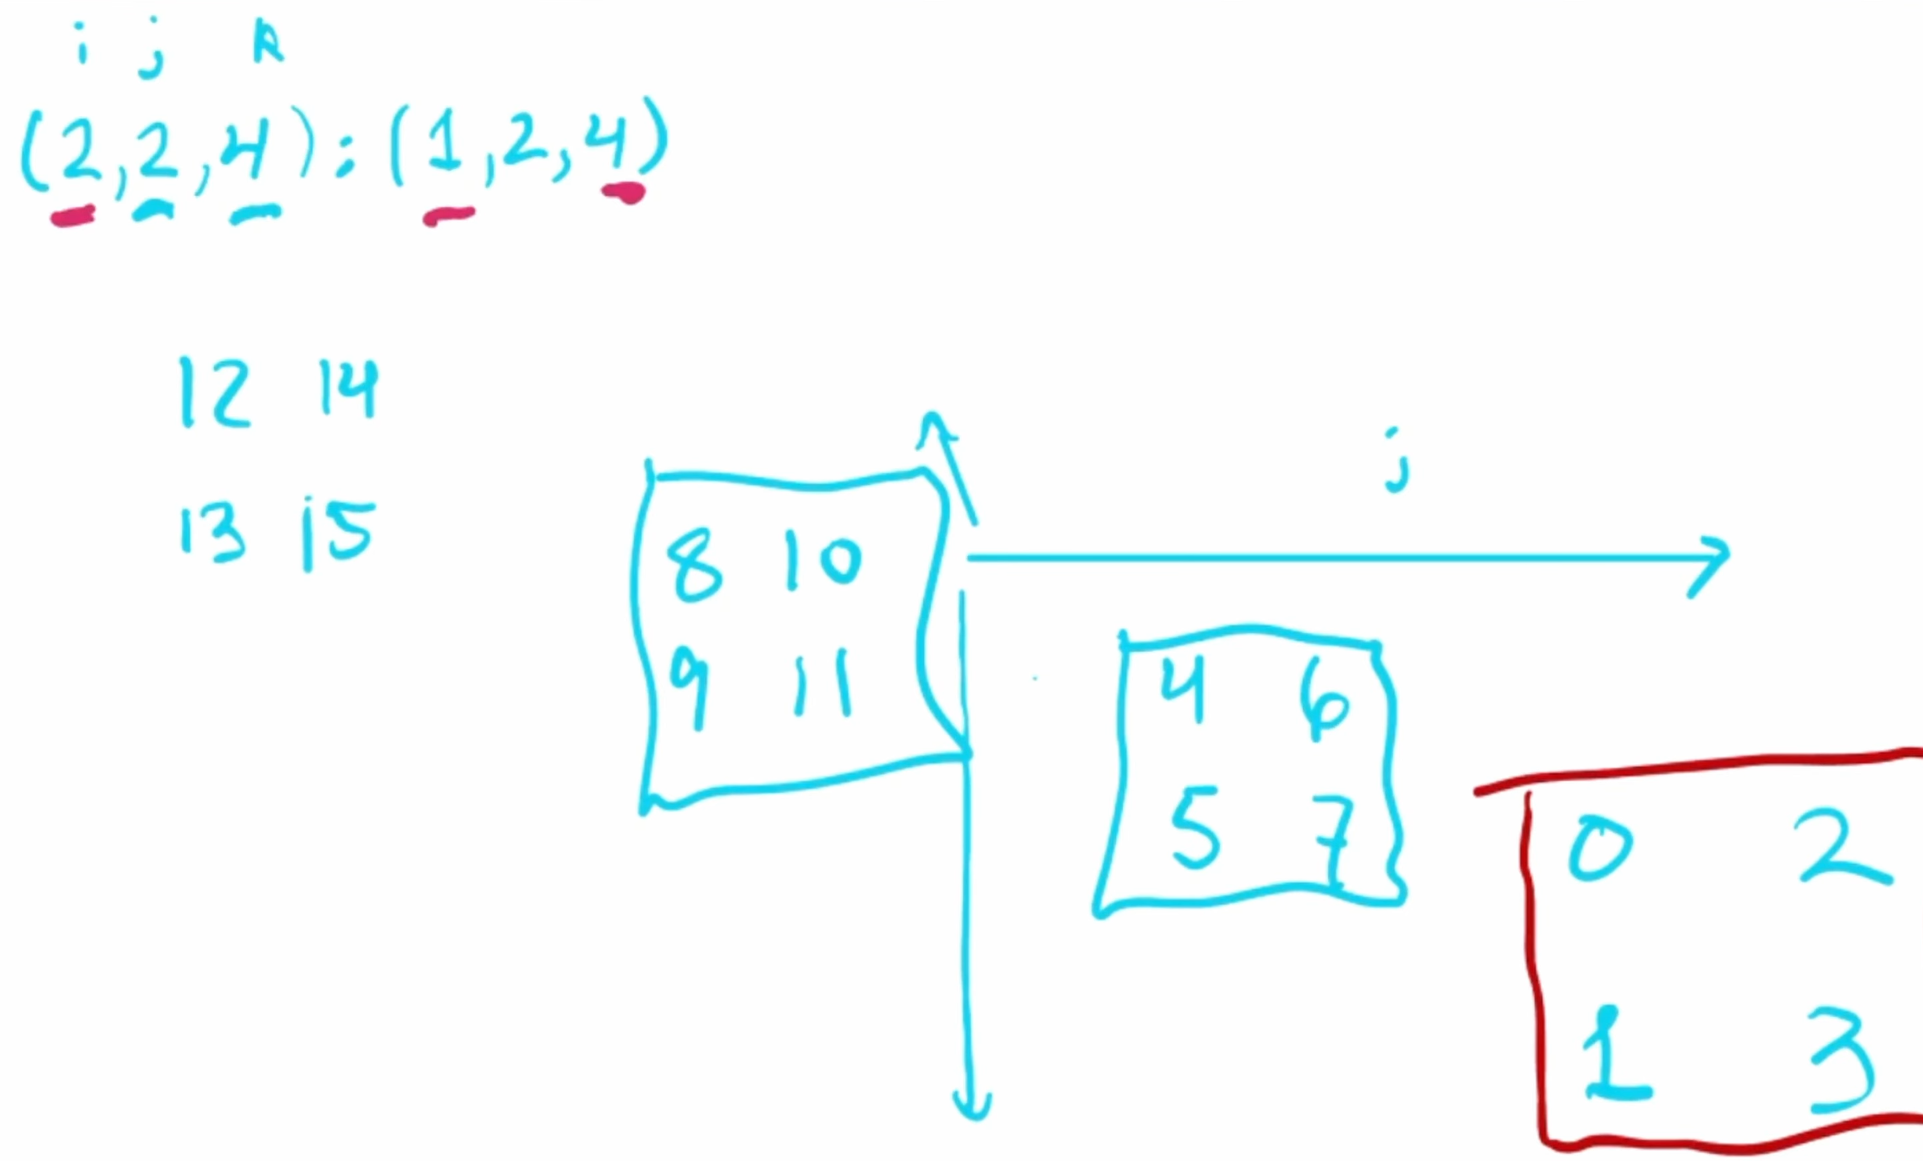 i j k
(2,2,4):(1,2,4)
12 14
13 15
j
8 10
9 11
4 6
5 7
0 2
1 3